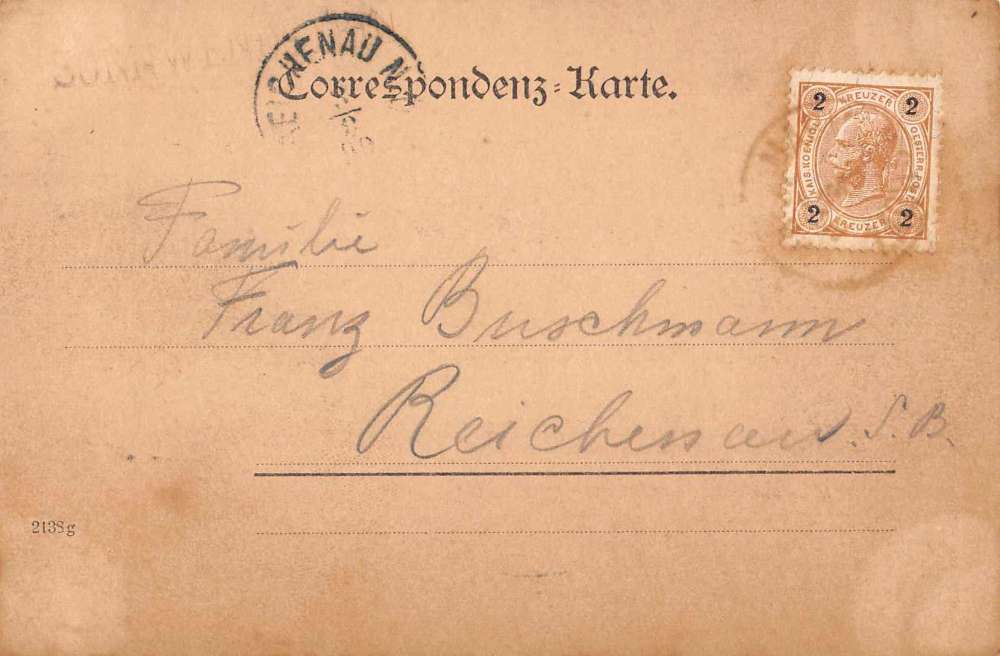 REICHENAU N.
Correspondenz-Karte.
2 KREUZER 2
KAIS. KOENIGL. OESTERR. POST
2 KREUZER 2
Familie
Franz Buschmann
Reichenau S. B.
2138g